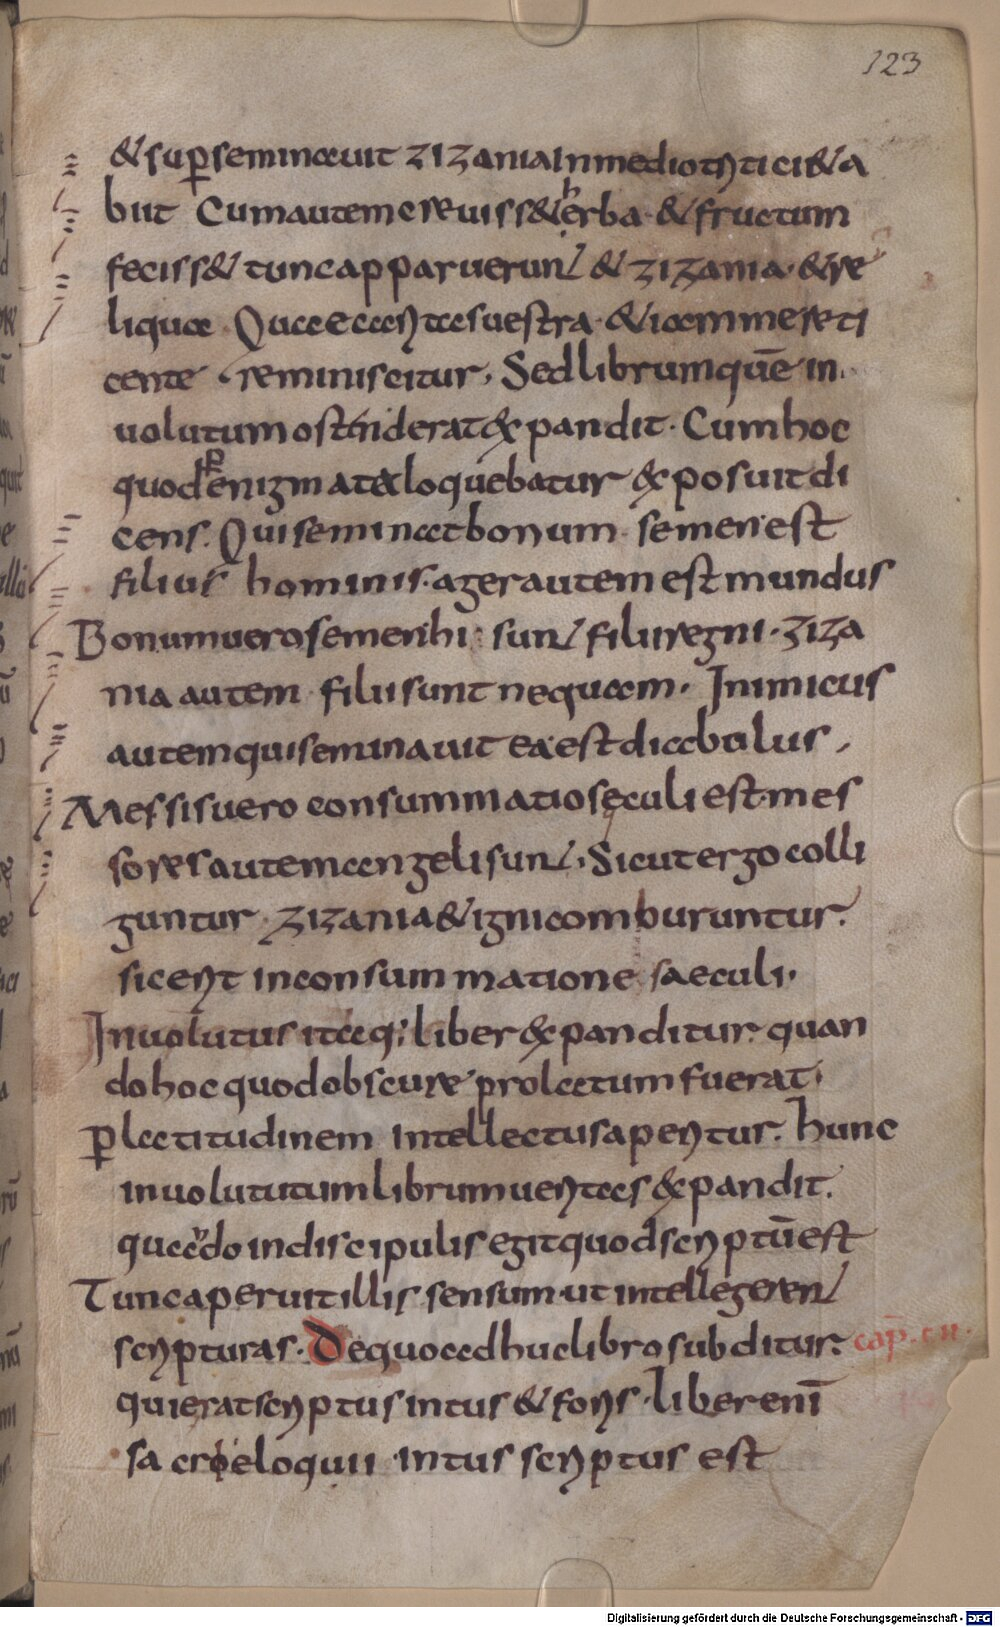 123
& sup̱seminauit zizania in medio tritici & a
biit Cum autem creuiss& herba · & fructum
feciss& tunc apparuerunt & zizania · & re
liqua Quae caritas uestra · & iam me reti
cente · reminiscitur, Sed librum quē in
uolutum ostenderat expandit · Cum hoc
quod per enigmata loquebatur exposuit di
cens. Qui seminat bonum · semen est
filius hominis · ager autem est mundus
Bonum uero semen hi · sunt filii regni · ziza
nia autem filii sunt nequam · Inimicus
autem qui seminauit ea est diabolus,
Messis uero consummatio sęculi est · mes
sores autem angeli sunt, Sicut ergo colli
guntur · zizania & igni comburuntur.
sic erit in consummatione saeculi ·
Inuolutus itaq; liber expanditur · quan
do hoc quod obscure prolatum fuerat ·
p̱ latitudinem intellectus aperitur. hunc
inuolututum librum ueritas expandit.
quando in discipulis egit quod scriptū est
Tunc aperuit illis · sensum · ut intellegerent
scripturas · De quo adhuc libro subditur · cap̄. cII.
qui erat scriptus intus & foris · liber enī
sacri eloquii intus scriptus est
Digitalisierung gefördert durch die Deutsche Forschungsgemeinschaft - DFG